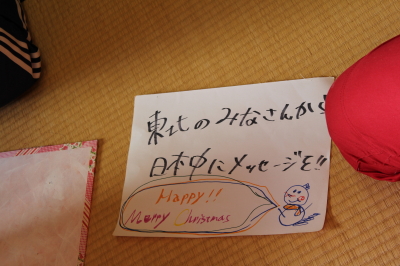 東北のみなさんから
日本中にメッセージを!!
Happy!!
Merry Christmas